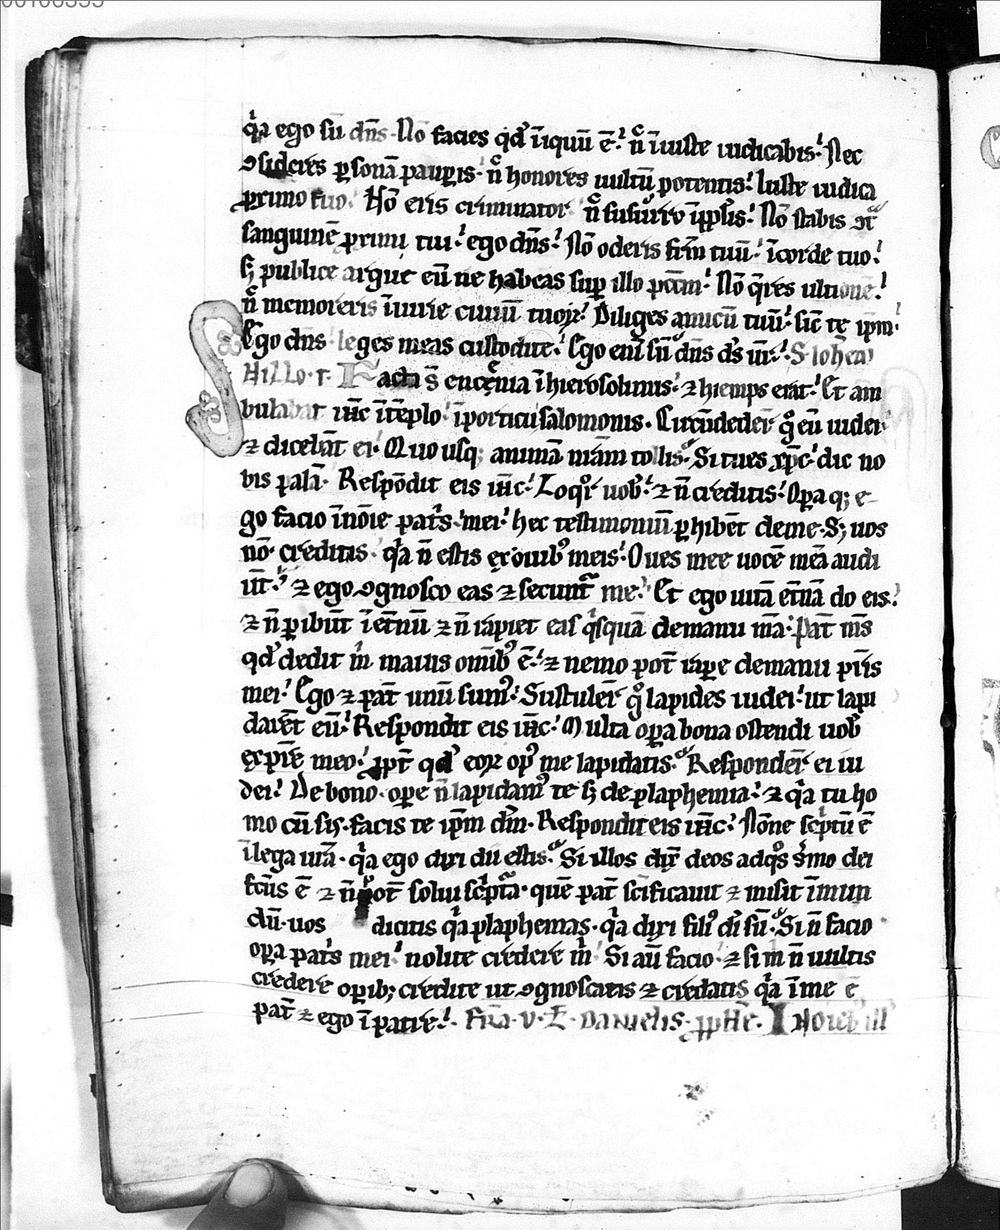 q̓a ego sū dn̄s. Nō facies qd̓ īiquū ē.ʼ n̄ iniuste iudicabis.ʼ Nec
ꝯsideres ꝑsonā pauꝑis. n̄ honores uultū potentis.ʼ Iuste iudica
ꝓximo tuo. Nō eris criminator n̄ susurro ī ppl̄is.ʼ Nō stabis ꝯt̄
sanguinē ꝓximi tui.ʼ ego dn̄s.ʼ Nō oderis fr̄m tuū.ʼ ī corde tuo.ʼ
s; publice argue eū ne habeas suꝑ illo pcc̄m. Nō q̄res ultionē.ʼ
n̄ memoreris iniurie ciuiū tuoꝝ.ʼ Diliges amicū tuū.ʼ sic̄ te ip̄m.
Ego dn̄s leges meas custodite.ʼ Ego eni sū dn̄s ds̄ ur̄.ʼ S iohem
IN illo. t. Facta s̄ encenia ī hierosolimis.ʼ ⁊ hiemps erat.ʼ Et am
bulabat ih̄c ī tēplo. ī porticu salomonis. Circūdeder̄ g̊ eū iudei
⁊ dicebāt ei.ʼ Quo usq; animā nr̄am tollis. Si tu es xp̄c.ʼ dic no
bis palā. Respōdit eis ih̄c.ʼ Loq̓r uob̄.ʼ ⁊ n̄ creditis.ʼ Oꝑa q; e
go facio ī nōie patr̄s mei.ʼ hec testimoniū ꝑhibēt de me. S; uos
nō creditis. q̓a n̄ estis ex ouib; meis.ʼ Oues mee uocē meā audi
ūt.ʼ ⁊ ego ꝯgnosco eas ⁊ secunt̄ me.ʼ Et ego uitā et̄nā do eis.ʼ
⁊ n̄ ꝑibūt ī et̄nū ⁊ n̄ rapiet eas q̓squā de manu m̄a.ʼ Pat̄ m̄s
qd̓ dedit m̓ maius omib; ē.ʼ ⁊ nemo pot̄ raꝑe de manu pr̄is
mei.ʼ Ego ⁊ pat̄ unū sum;.ʼ Sustuler̄ g̊ lapides iudei.ʼ ut lapi
darēt eū.ʼ Respondit eis ih̄c.ʼ Multa oꝑa bona ostendi uob̄
ex pr̄e meo.ʼ ꝓpt̄ qd̓ eoꝝ op; me lapidatis. Responder̄ ei iu
dei.ʼ De bono oꝑe n̄ lapidam; te s; de plaphemia.ʼ ⁊ q̓a tu ho
mo cū sis. facis te ip̄m dm̄. Respondit eis ih̄c.ʼ Nōne sc̓ptū ē
ī lega ur̄a. q̓a ego dixi dii estis. Si illos dix̄ deos ad q̊s s̓mo dei
fcūs ē ⁊ n̄ pot̄ solui sc̓pta. quē pat̄ sc̄ificauit ⁊ misit ī mun
dū. uos dicitis q̓a plaphemas. q̓a dixi fili; di̓ sū. Si n̄ facio
oꝑa patr̄s mei.ʼ nolite credere m̓ Si aū facio. ⁊ si m̓ n̄ uultis
credere oꝑib; credite ut ꝯgnoscatis ⁊ credatis q̓a ī me ē
pat̄ ⁊ ego ī patre.ʼ. Fr̄ia. v. L. Danielis. ꝓphe. I